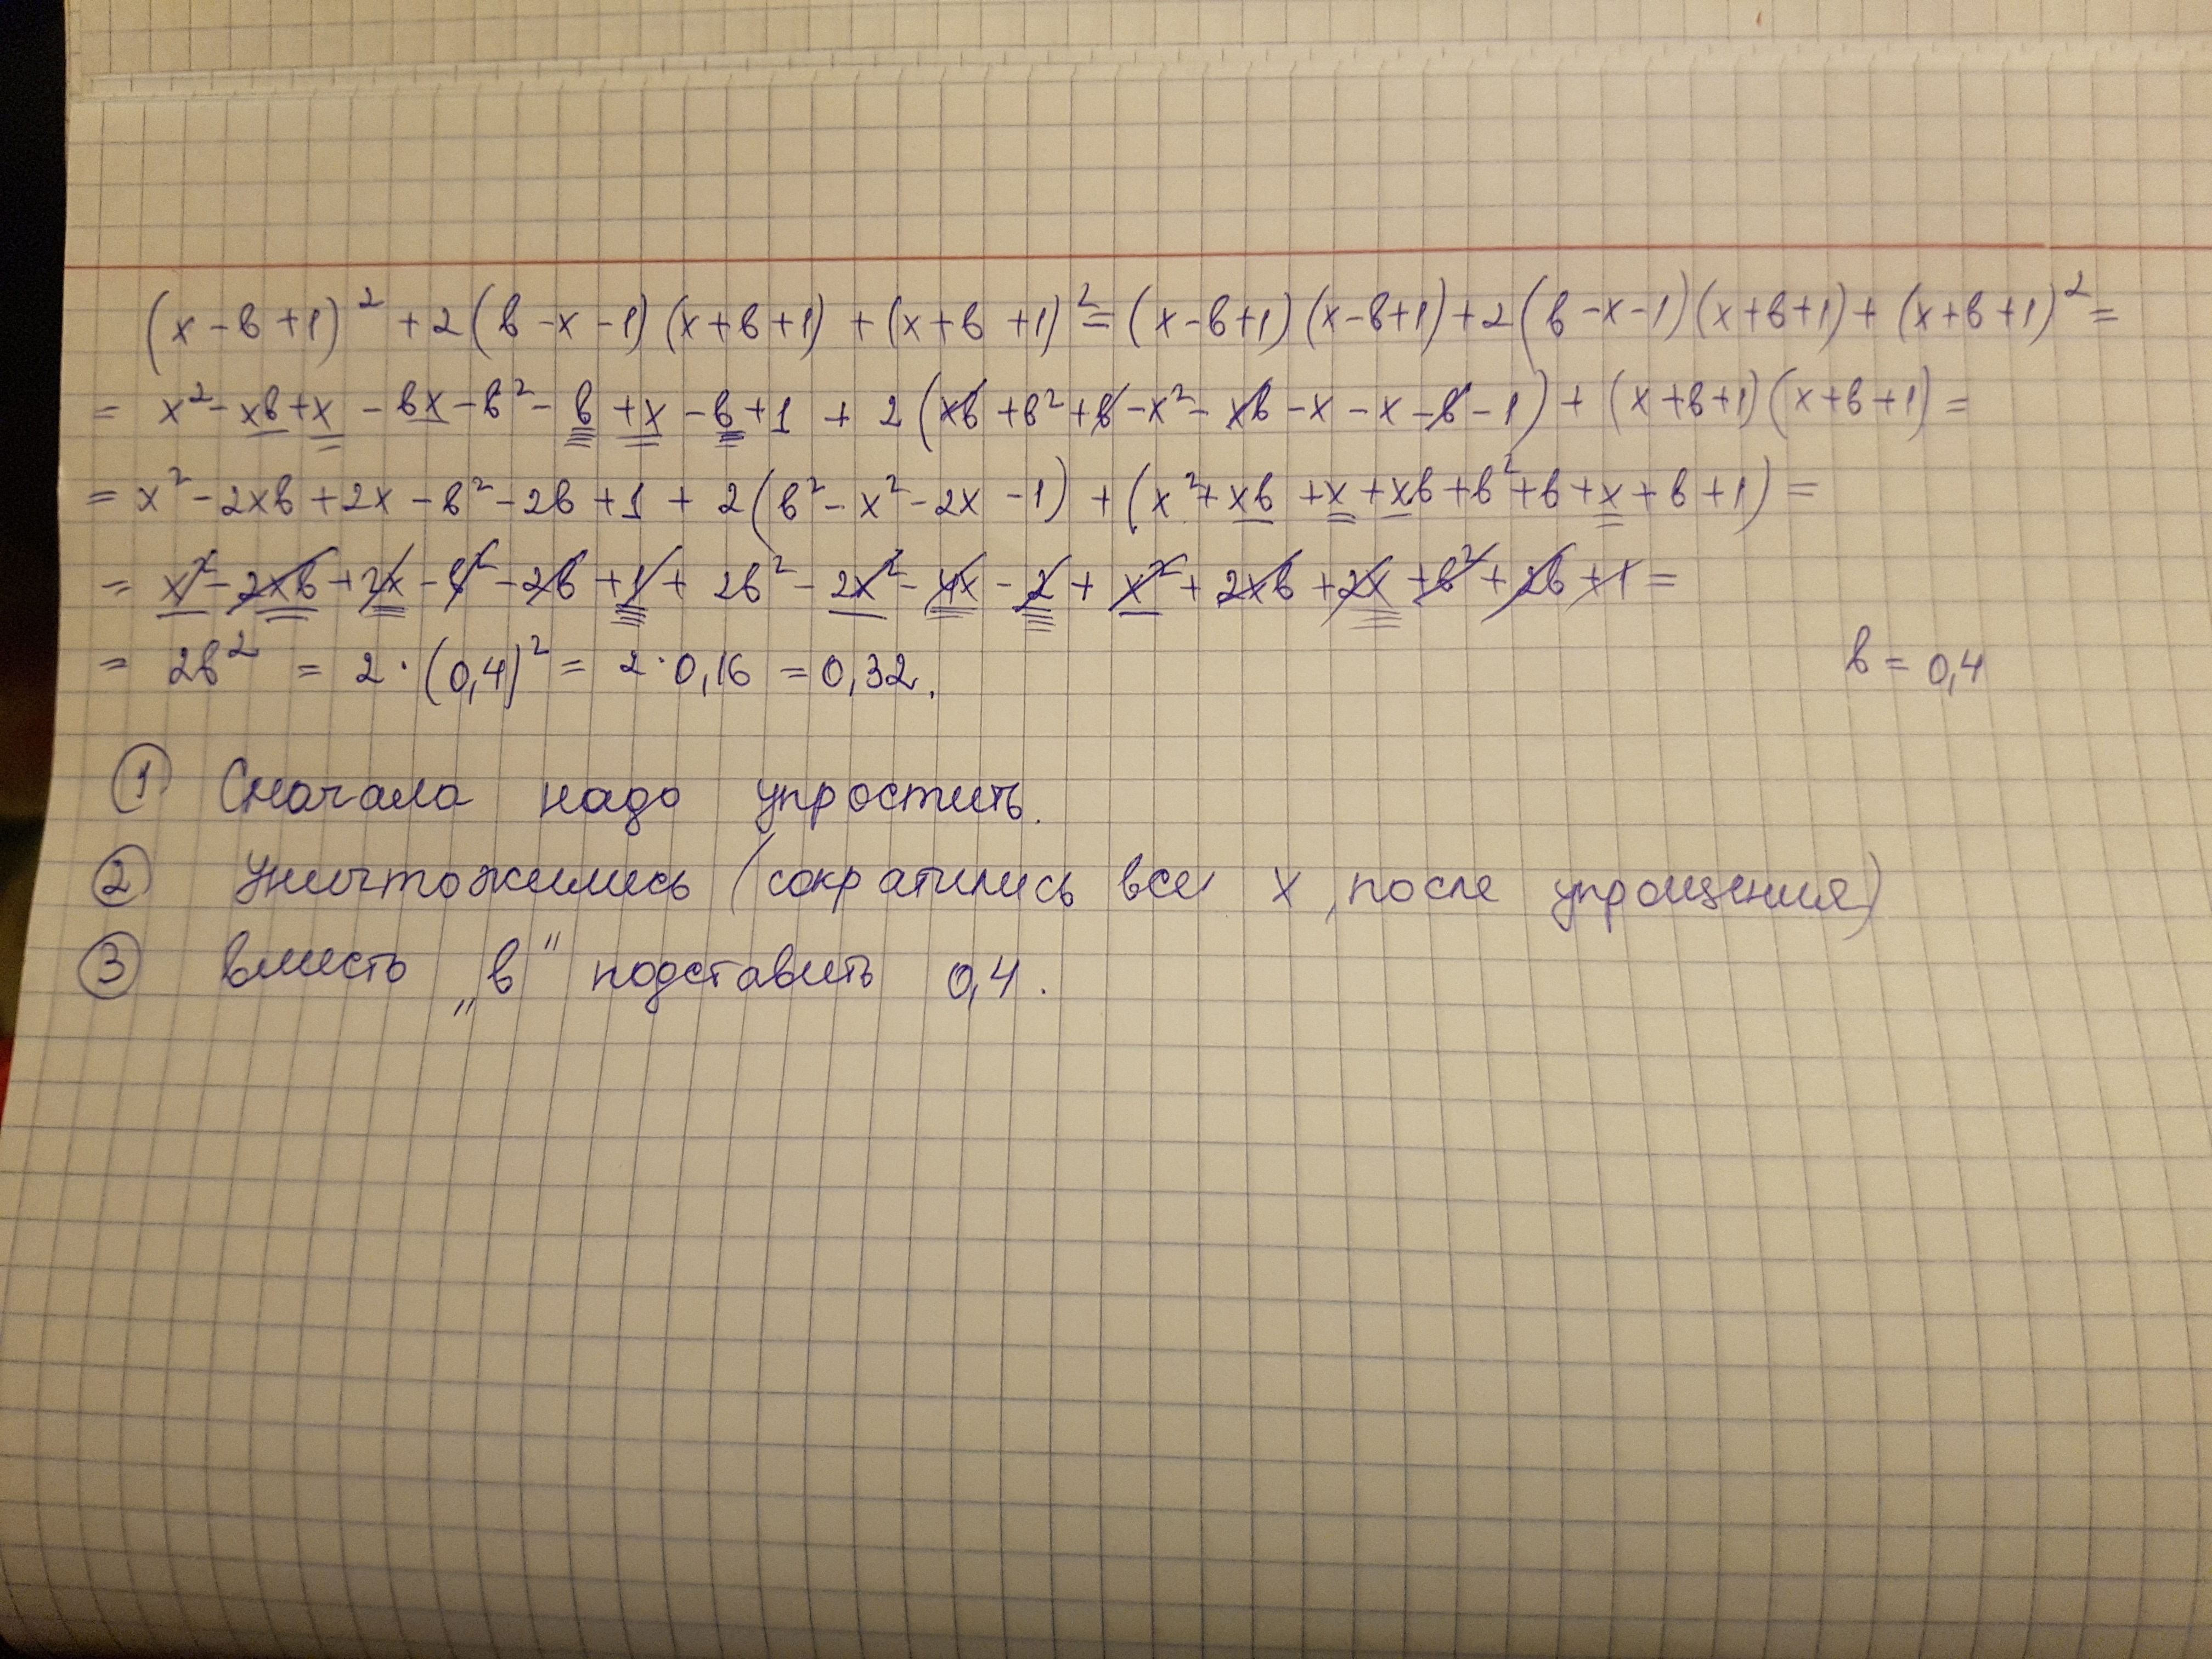 (x-в+1)²+2(в-x-1)(x+в+1)+(x+в+1)²=(x-в+1)(x-в+1)+2(в-x-1)(x+в+1)+(x+в+1)²=
= x²-xв+x-вx-в²-в+x-в+1+2(xв+в²+в-x²-xв-x-x-в-1)+(x+в+1)(x+в+1)=
= x²-2xв+2x-в²-2в+1+2(в²-x²-2x-1)+(x²+xв+x+xв+в²+в+x+в+1)=
= x²-2xв+2x-в²-2в+1+2в²-2x²-4x-2+x²+2xв+2x+в²+2в+1=
= 2в² = 2·(0,4)² = 2·0,16 = 0,32. в = 0,4
① Сначала надо упростить.
② Уничтожились (сократились все x, после упрощения)
③ вместо „в" подставить 0,4.